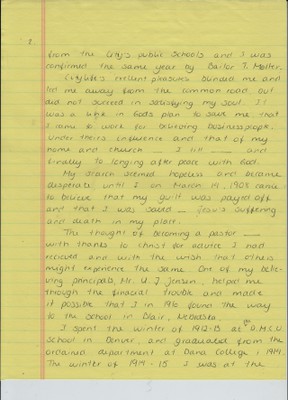 2
from the city's public schools and I was
confirmed the same year by Pastor J. Møller.
City life's evident pleasures blinded me and
led me away from the common road but
did not succeed in satisfying my soul. It
was a link in God's plan to save me that
I came to work for believing businesspeople.
Under theirs influence and that of my
home and church — I fell — and
finally to longing after peace with God.
My search seemed hopeless and became
desperate until I on March 19, 1908 came
to believe that my guilt was payed off
and that I was saved — Jesu's suffering
and death in my place.
The thought of becoming a pastor —
with thanks to Christ for advice I had
received and with the wish that others
might experience the same. One of my belie-
ving principals, Mr. U. J. Jensen, helped me
though the finacial trouble and made
it possible that I in 1910 found the way
to the school in Blair, Nebraska.
I spent the winter of 1912-13 at the D.M.C.U
school in Denver, and graduated from the
ordained department at Dana College i 1914.
The winter of 1914-15 I was at the